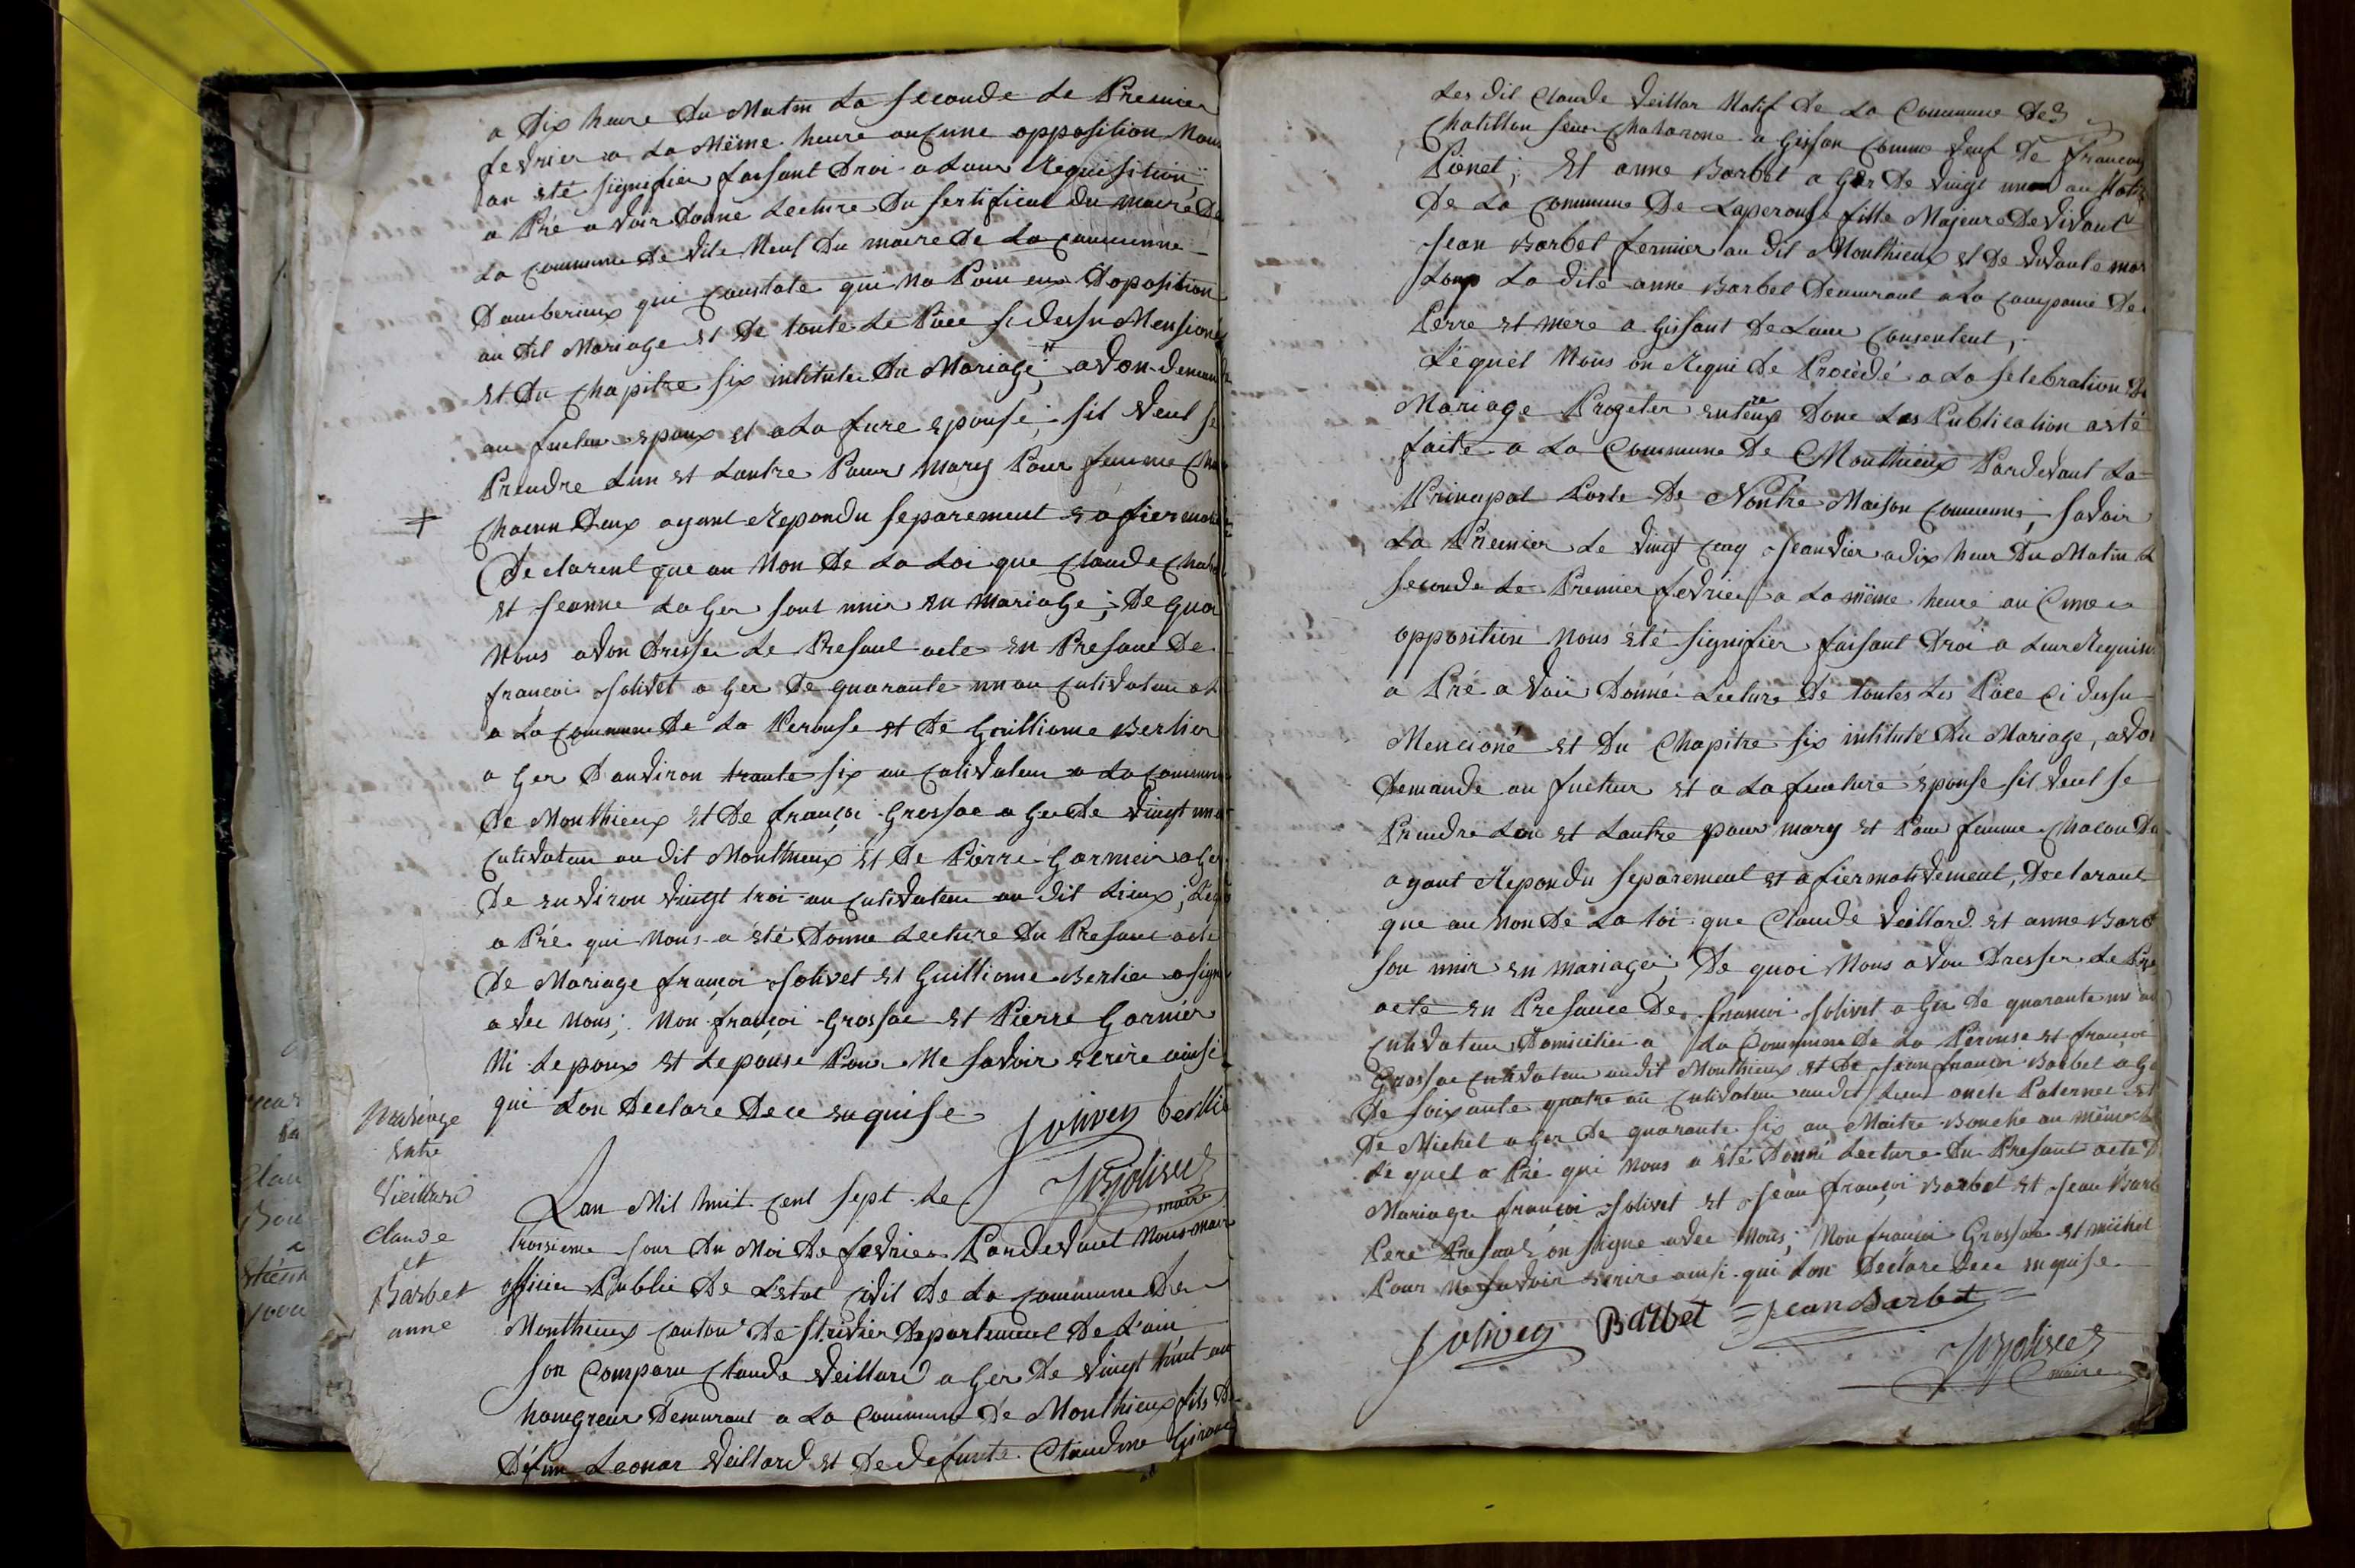 a dix heure du Matin La seconde Le Premier
fevrier a La Même heure aucune opposition Nous
on été signifier faisant droi a Leur Requisition
a Pré avoir donné Lecture du sertificat du maire de
La commune de Vile Neuf du maire de La commune
Damberieux qui constate qui Na Poin eux Doposition
au dit Mariage et de toute Le Piece si dessu Mensioné
et du chapitre six intitule du Mariage, avon demand
au fuctur epoux et a La fure epouse, sil veul se
Prendre Lun et Lautre Pour mary Pour femme
+ chacun deux ayant Repondu separement
Declarent que au Non de La Loi que Claude
et Jeanne Lager sont unir en mariage; de quoi
Nous avon dresser Le Presant acte en Presance de
françoi Jolivet a Ger de quarante un an cultivateur
a La commune de La Perouse et de Guilliome Berlier
a Ger d'andiron trante six an cultivateur a La commune
de Monthieux et de françoi Grossac a Ger de vingt un
cultivateur au dit Monthieux et de Pierre Garnier a Ger
de endiron vingt troi an cultivateur au dit Lieux;
a Pré qui Nous a été donne Lecture du Presant acte
de Mariage françoi Jolivet et Guilliome Berlier a signé
avec Nous; Non françoi Grossac et Pierre Garnier
Ni Lepoux et Lepouse Pour Ne savoir ecrire ainsi
qui Lon declare de ce enquise
Jolivet berllie
Jolivet
maire
Mariage
entre
Vieillard
Claude
et
Barbet
anne
Lan Mil huit cent sept Le
troisieme Jour du Moi de fevrier Pardevant Nous maire
officier Public de L'etat civil de La commune de
Monthieux canton de St. trivier departement de L'ain
son comparu Claude Veillard a Ger de vingt huit an
demurant a La commune de Monthieux fils de
défun Leonar Veillard et de defunte Claudine
Les dit Claude Veillar Natif de La Commune de
Chatillon seur Chalarone a Gissan comme veuf de françoise
Pionet; Et anne Barbet a Ger de vingt un an Natif
de La Commune de Laperouse fille Majeure de vivant
Jean Barbet fermier au dit Monthieux et de vivante
Loup La dite anne Barbet demurant a La compaine de
Perre et mere a Gissant de Leur consentent,
Lequel Nous on Requi de Procédé a La selebration du
Mariage Progeter entre eux donc Les Publication a été
faite a La Commune de Monthieux Pardevant La
Principal Porte de Nontre Maison commune; savoir
La Premier Le vingt cinq Jeanvier a dix heur du Matin La
seconde Le Premier fevrier a La même heure au cune
opposition Nous été signifier faisant droi a Leur Requisi
a Pré avoir donné Lecture de toutes Les Piece ci dessu
Mencioné et du Chapitre six intitulé du Mariage, avon
demande au fuctur et a La fucture épouse sil veul se
Prendre Lun et Lautre pour mary et Pour femme chacun
ayant Repondu separement et afiermativement, declarant
que au Non de La Loi que Claude Veillard et anne Barb
son unir en mariage; de quoi Nous avon dresser Le Pre
acte en Presance de françoi Jolivet a Ger de quarante un an
cultivateur domicilier a La Commune de La Perouse et françoi
Grossac cultivateur audit Monthieux et de Jean françoi Barbet a Ge
de soixante quatre an cultivateur audit Lieux oncle Paternel et
de Michel a Ger de quarante six an Maitre Bouche au même
Lequel a Pré qui Nous a été donné Lecture du Presant acte d
Mariage françoi Jolivet et Jean françoi Barbet et Jean Barb
Pere Presant on signe avec Nous; Non françoi Grossac et michel
Pour Ne savoir ecrire ainsi qui Lon declare dece enquise
Jolivet Barbet Jean Barbet
Jolivet
maire